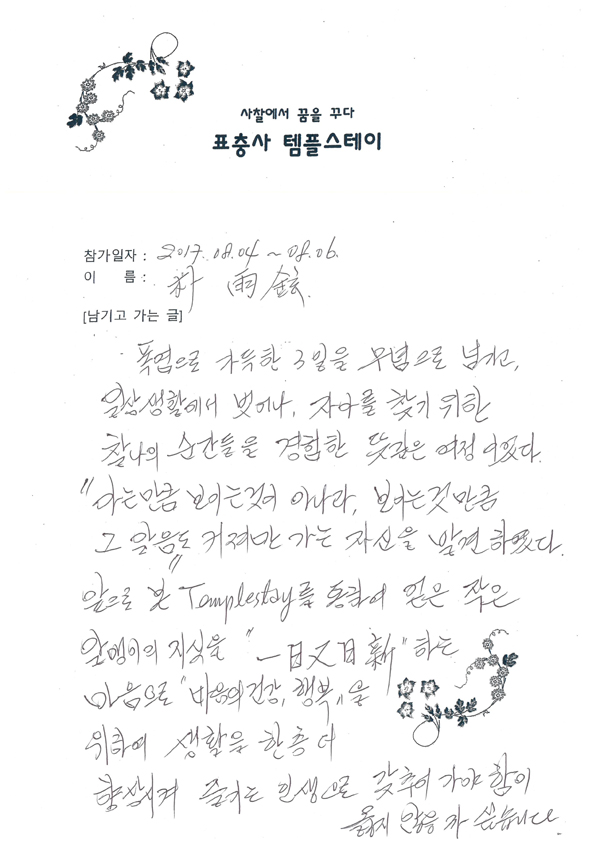 사찰에서 꿈을 꾸다
표충사 템플스테이
참가일자 : 2017. 08. 04 ~ 08. 06.
이 름 : 朴 雨 鉉
[남기고 가는 글]
폭염으로 가득한 3일을 무념으로 넘기고,
일상생활에서 벗어나, 자아를 찾기 위한
찰나의 순간들을 경험한 뜻깊은 여정 이었다.
"아는만큼 보이는것이 아니라, 보이는것 만큼
그 앎음도 커져만 가는 자신을 발견 하였다.
앞으로 본 Templestay를 통하여 얻은 작은
알맹이의 지식을 "一日又日新" 하는
마음으로 "마음의 건강, 행복"을
위하여 생활을 한층 더
향상시켜 즐기는 인생으로 갖추어 가야 함이
옳지 않을 까 싶습니다.